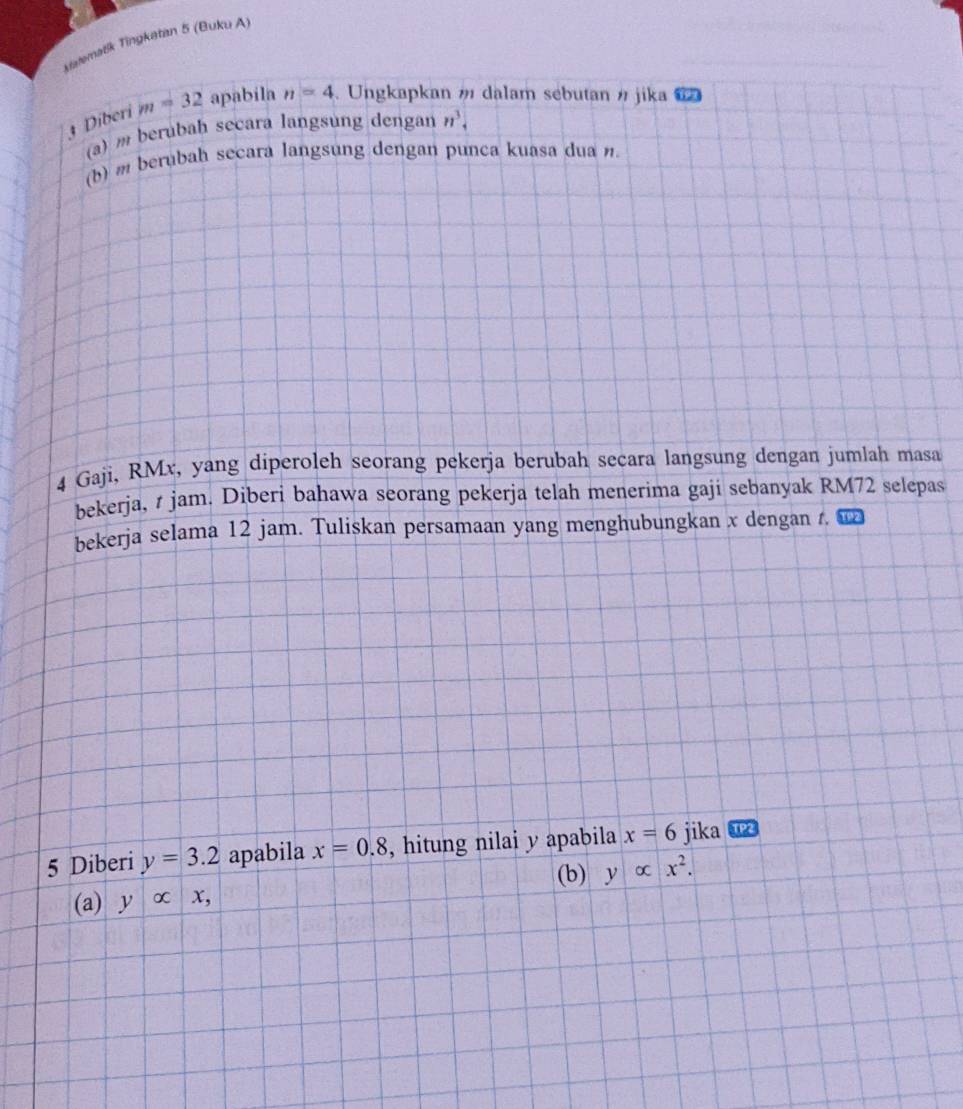 Matematik Tingkatan 5 (Buku A)
3 Diberi m = 32 apabila n = 4. Ungkapkan m dalam sebutan n jika TP2
(a) m berubah secara langsung dengan n³,
(b) m berubah secara langsung dengan punca kuasa dua n.
4 Gaji, RMx, yang diperoleh seorang pekerja berubah secara langsung dengan jumlah masa
bekerja, t jam. Diberi bahawa seorang pekerja telah menerima gaji sebanyak RM72 selepas
bekerja selama 12 jam. Tuliskan persamaan yang menghubungkan x dengan t. TP2
5 Diberi y = 3.2 apabila x = 0.8, hitung nilai y apabila x = 6 jika TP2
(a) y ∝ x, (b) y ∝ x².